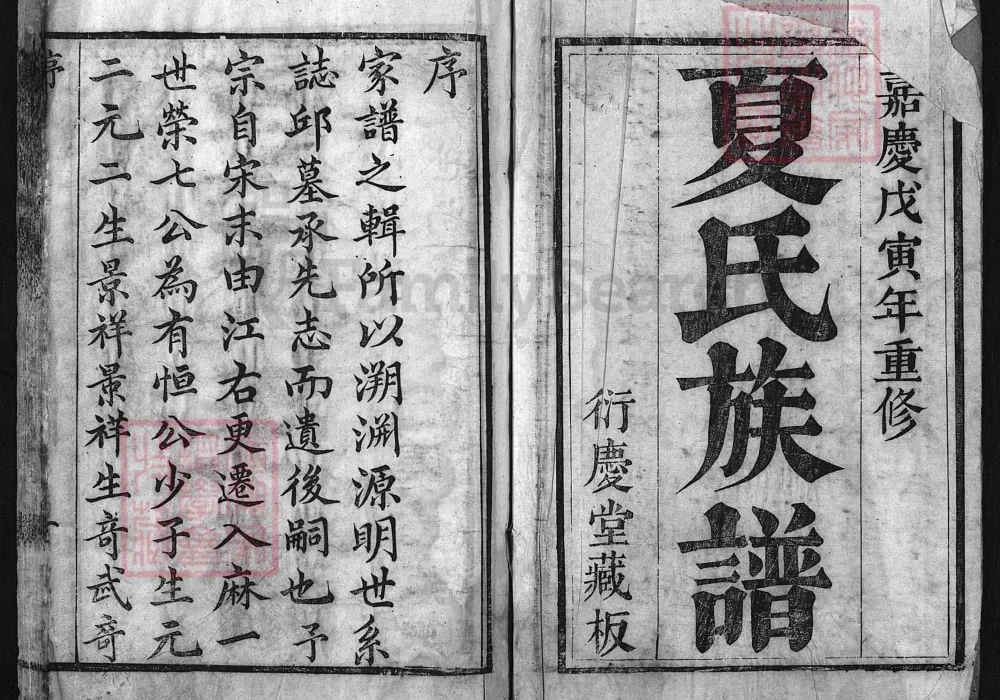 嘉慶戊寅年重修
夏氏族譜
衍慶堂藏板
序
家譜之輯所以溯淵源明世系
誌邱墓承先志而遺後嗣也予
宗自宋末由江右更遷入麻一
世榮七公為有恒公少子生元
二元二生景祥景祥生奇武奇
序
FamilySearch